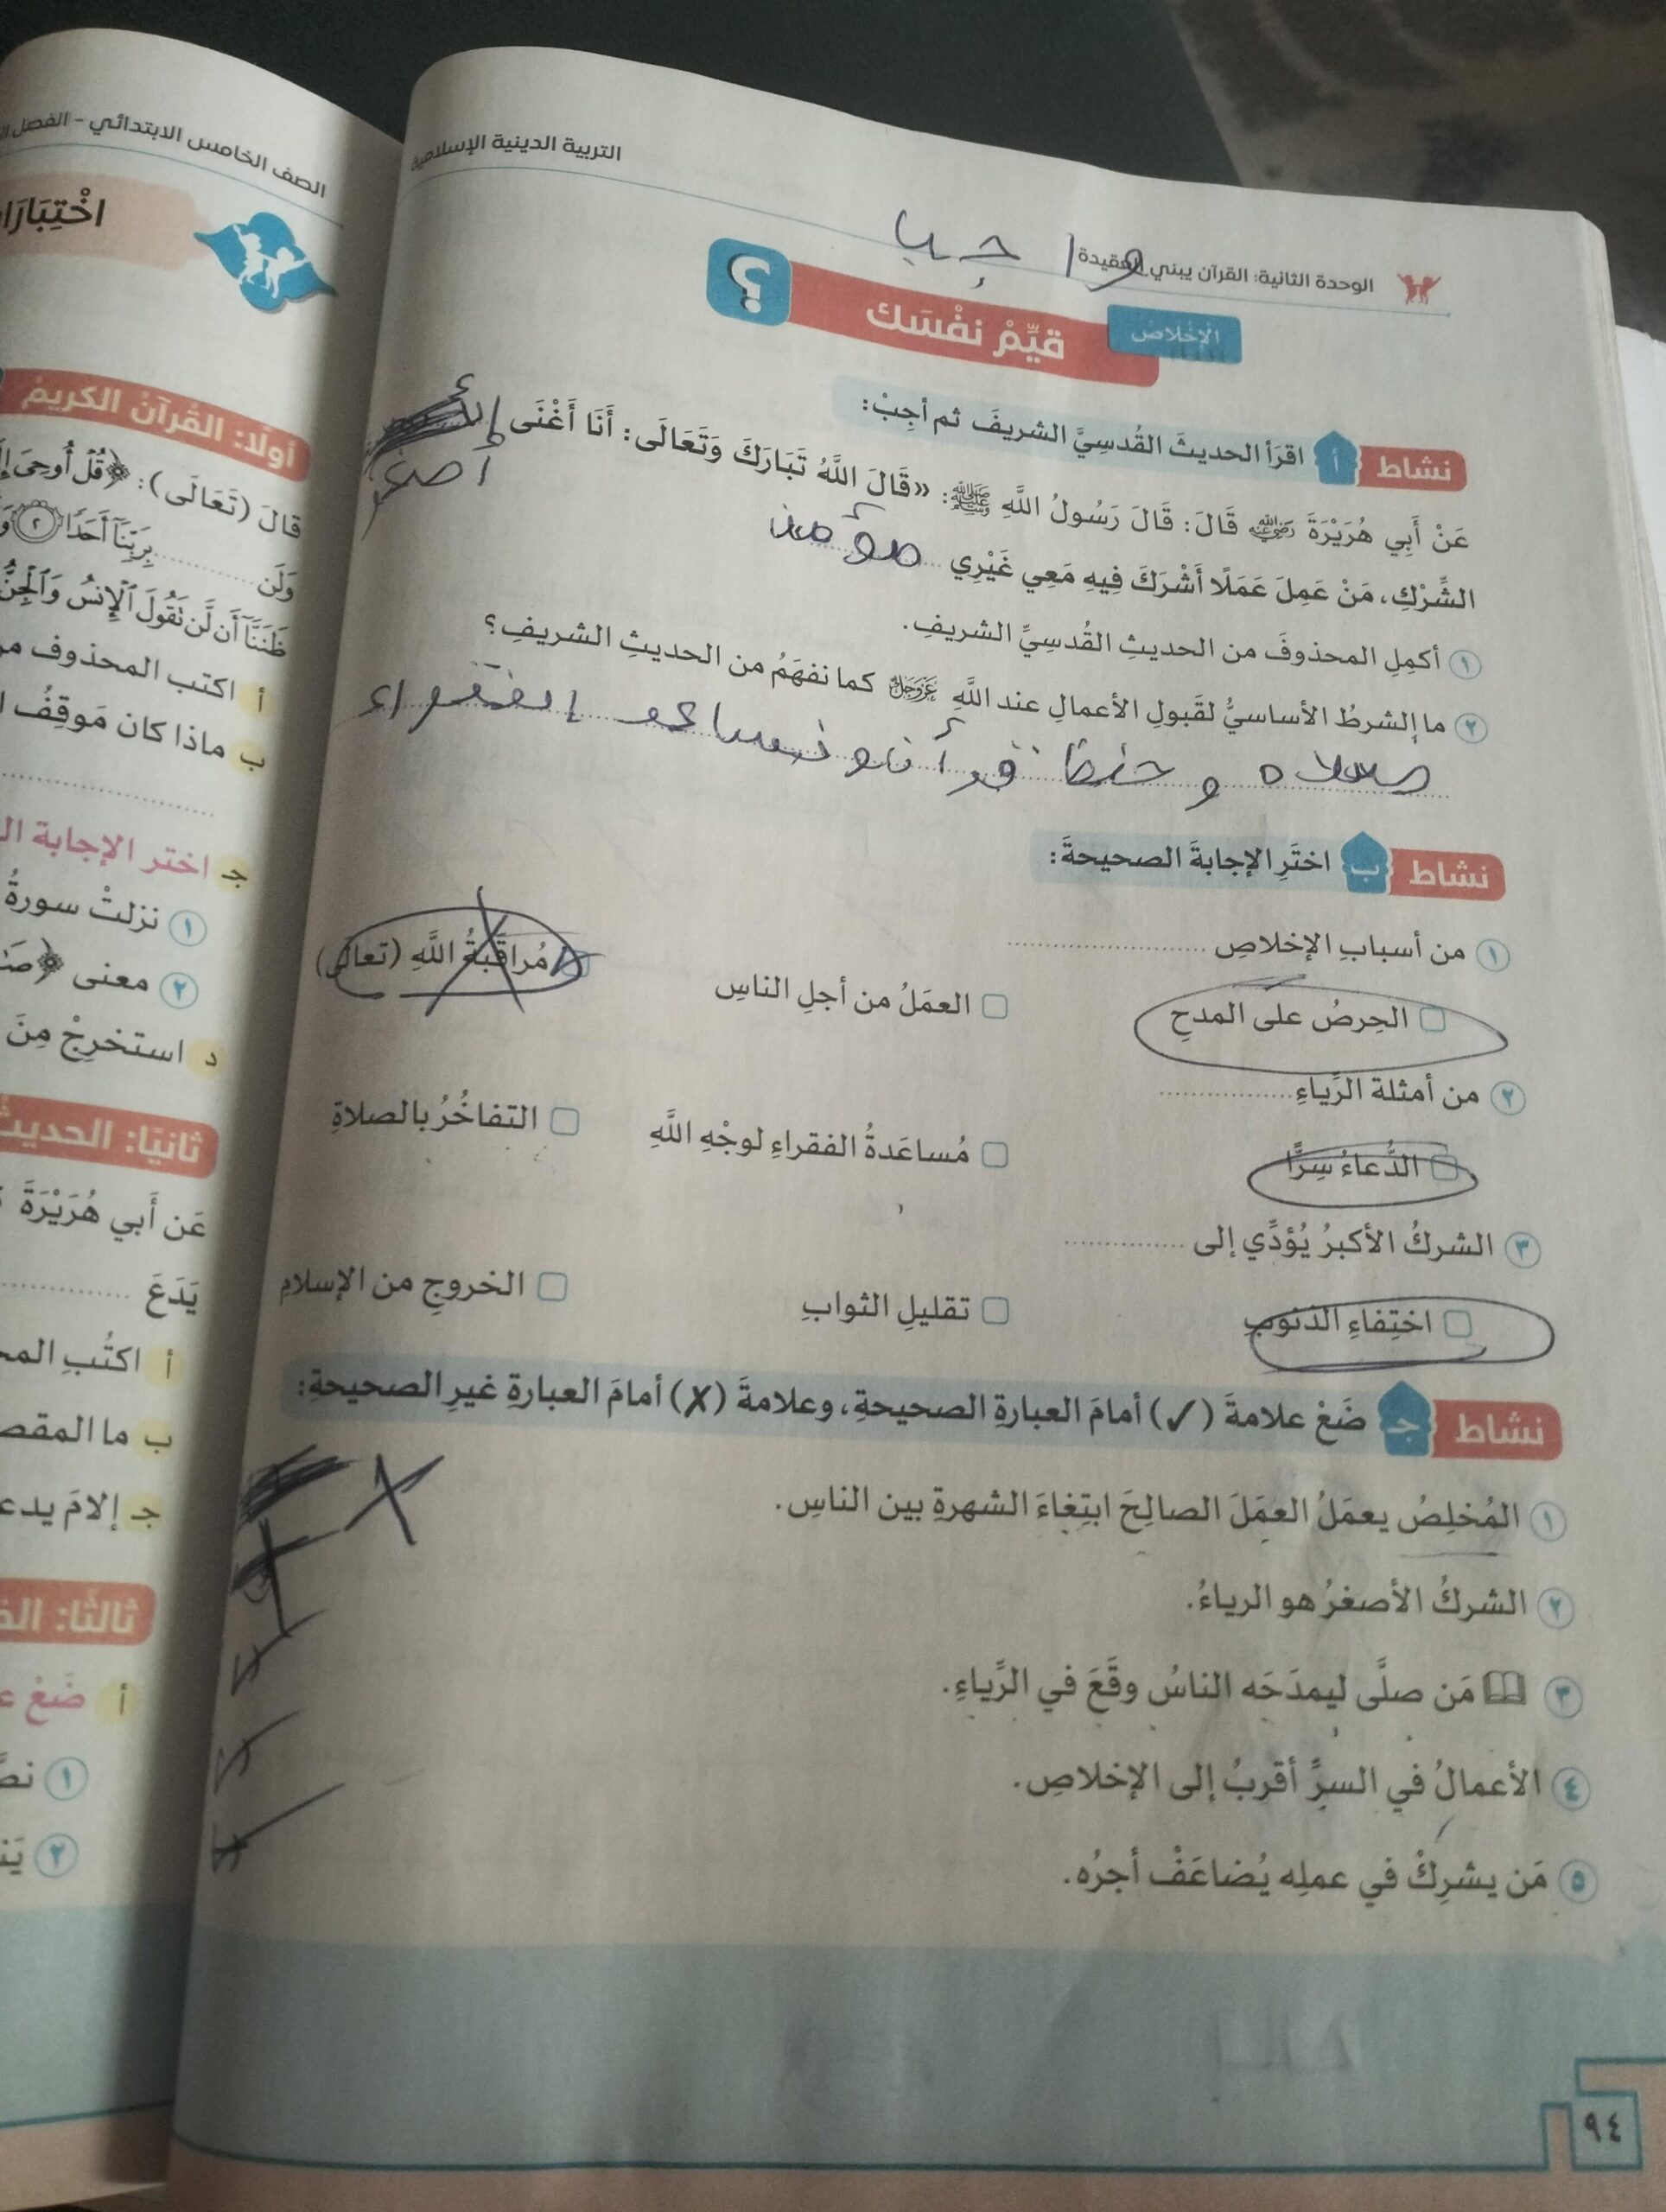 التربية الدينية الإسلامية
الوحدة الثانية: القرآن يبني العقيدة
واجب
الإخلاص
قيِّمْ نفْسَك
؟
نشاط أ اقرَأ الحديثَ القُدسِيَّ الشريفَ ثم أجِبْ:
عَنْ أَبِي هُرَيْرَةَ رضي الله عنه قَالَ: قَالَ رَسُولُ اللَّهِ ﷺ: «قَالَ اللَّهُ تَبَارَكَ وَتَعَالَى: أَنَا أَغْنَى
أصغر
الشِّرْكِ، مَنْ عَمِلَ عَمَلًا أَشْرَكَ فِيهِ مَعِي غَيْرِي
١ أكمِلِ المحذوفَ من الحديثِ القُدسِيِّ الشريفِ.
٢ ما الشرطُ الأساسيُّ لقَبولِ الأعمالِ عند اللَّهِ عَزَّوَجَلَّ كما نفهَمُ من الحديثِ الشريفِ؟
صلاه و حفظ قرأن و نساعد الفقراء
نشاط ب اختَرِ الإجابةَ الصحيحةَ:
١ من أسبابِ الإخلاصِ ..................
الحِرصُ على المدحِ العمَلُ من أجلِ الناسِ مُراقَبةُ اللَّهِ (تعالى)
٢ من أمثلة الرِّياءِ..................
الدُّعاءُ سِرًّا مُساعَدةُ الفقراءِ لوجْهِ اللَّهِ التفاخُرُ بالصلاةِ
٣ الشركُ الأكبرُ يُؤدِّي إلى ..................
اختِفاءِ الذنوبِ تقليلِ الثوابِ الخروجِ من الإسلامِ
نشاط جـ ضَعْ علامةَ (✓) أمامَ العبارةِ الصحيحةِ، وعلامةَ (✗) أمامَ العبارةِ غيرِ الصحيحةِ:
١ المُخلِصُ يعمَلُ العمَلَ الصالِحَ ابتِغاءَ الشهرةِ بين الناسِ.
٢ الشركُ الأصغرُ هو الرياءُ.
٣ مَن صلَّى ليمدَحَه الناسُ وقَعَ في الرِّياءِ.
٤ الأعمالُ في السرِّ أقربُ إلى الإخلاصِ.
٥ مَن يشرِكْ في عملِه يُضاعَفْ أجرُه.
٩٤
الصف الخامس الابتدائي - الفصل
أولًا: القُرآنُ الكريمُ
قالَ (تَعَالَى): ﴿قُلْ أُوحِيَ
وَلَن .......... بِرَبِّنَآ أَحَدًا ٢
ظَنَنَّآ أَن لَّن نَقُولَ ٱلْإِنسُ وَٱلْجِنُّ
أ اكتب المحذوف
ب ماذا كان مَوقِفُ
جـ اختر الإجابة
١ نزلتْ سورةُ
٢ معنى
د استخرِجْ مِنَ
ثانيًا: الحديث
عَن أَبي هُرَيْرَةَ
يَدَعَ ..........
أ اكتُبِ
ب ما
جـ إلامَ
ثالثًا:
أ ضَعْ
١
٢